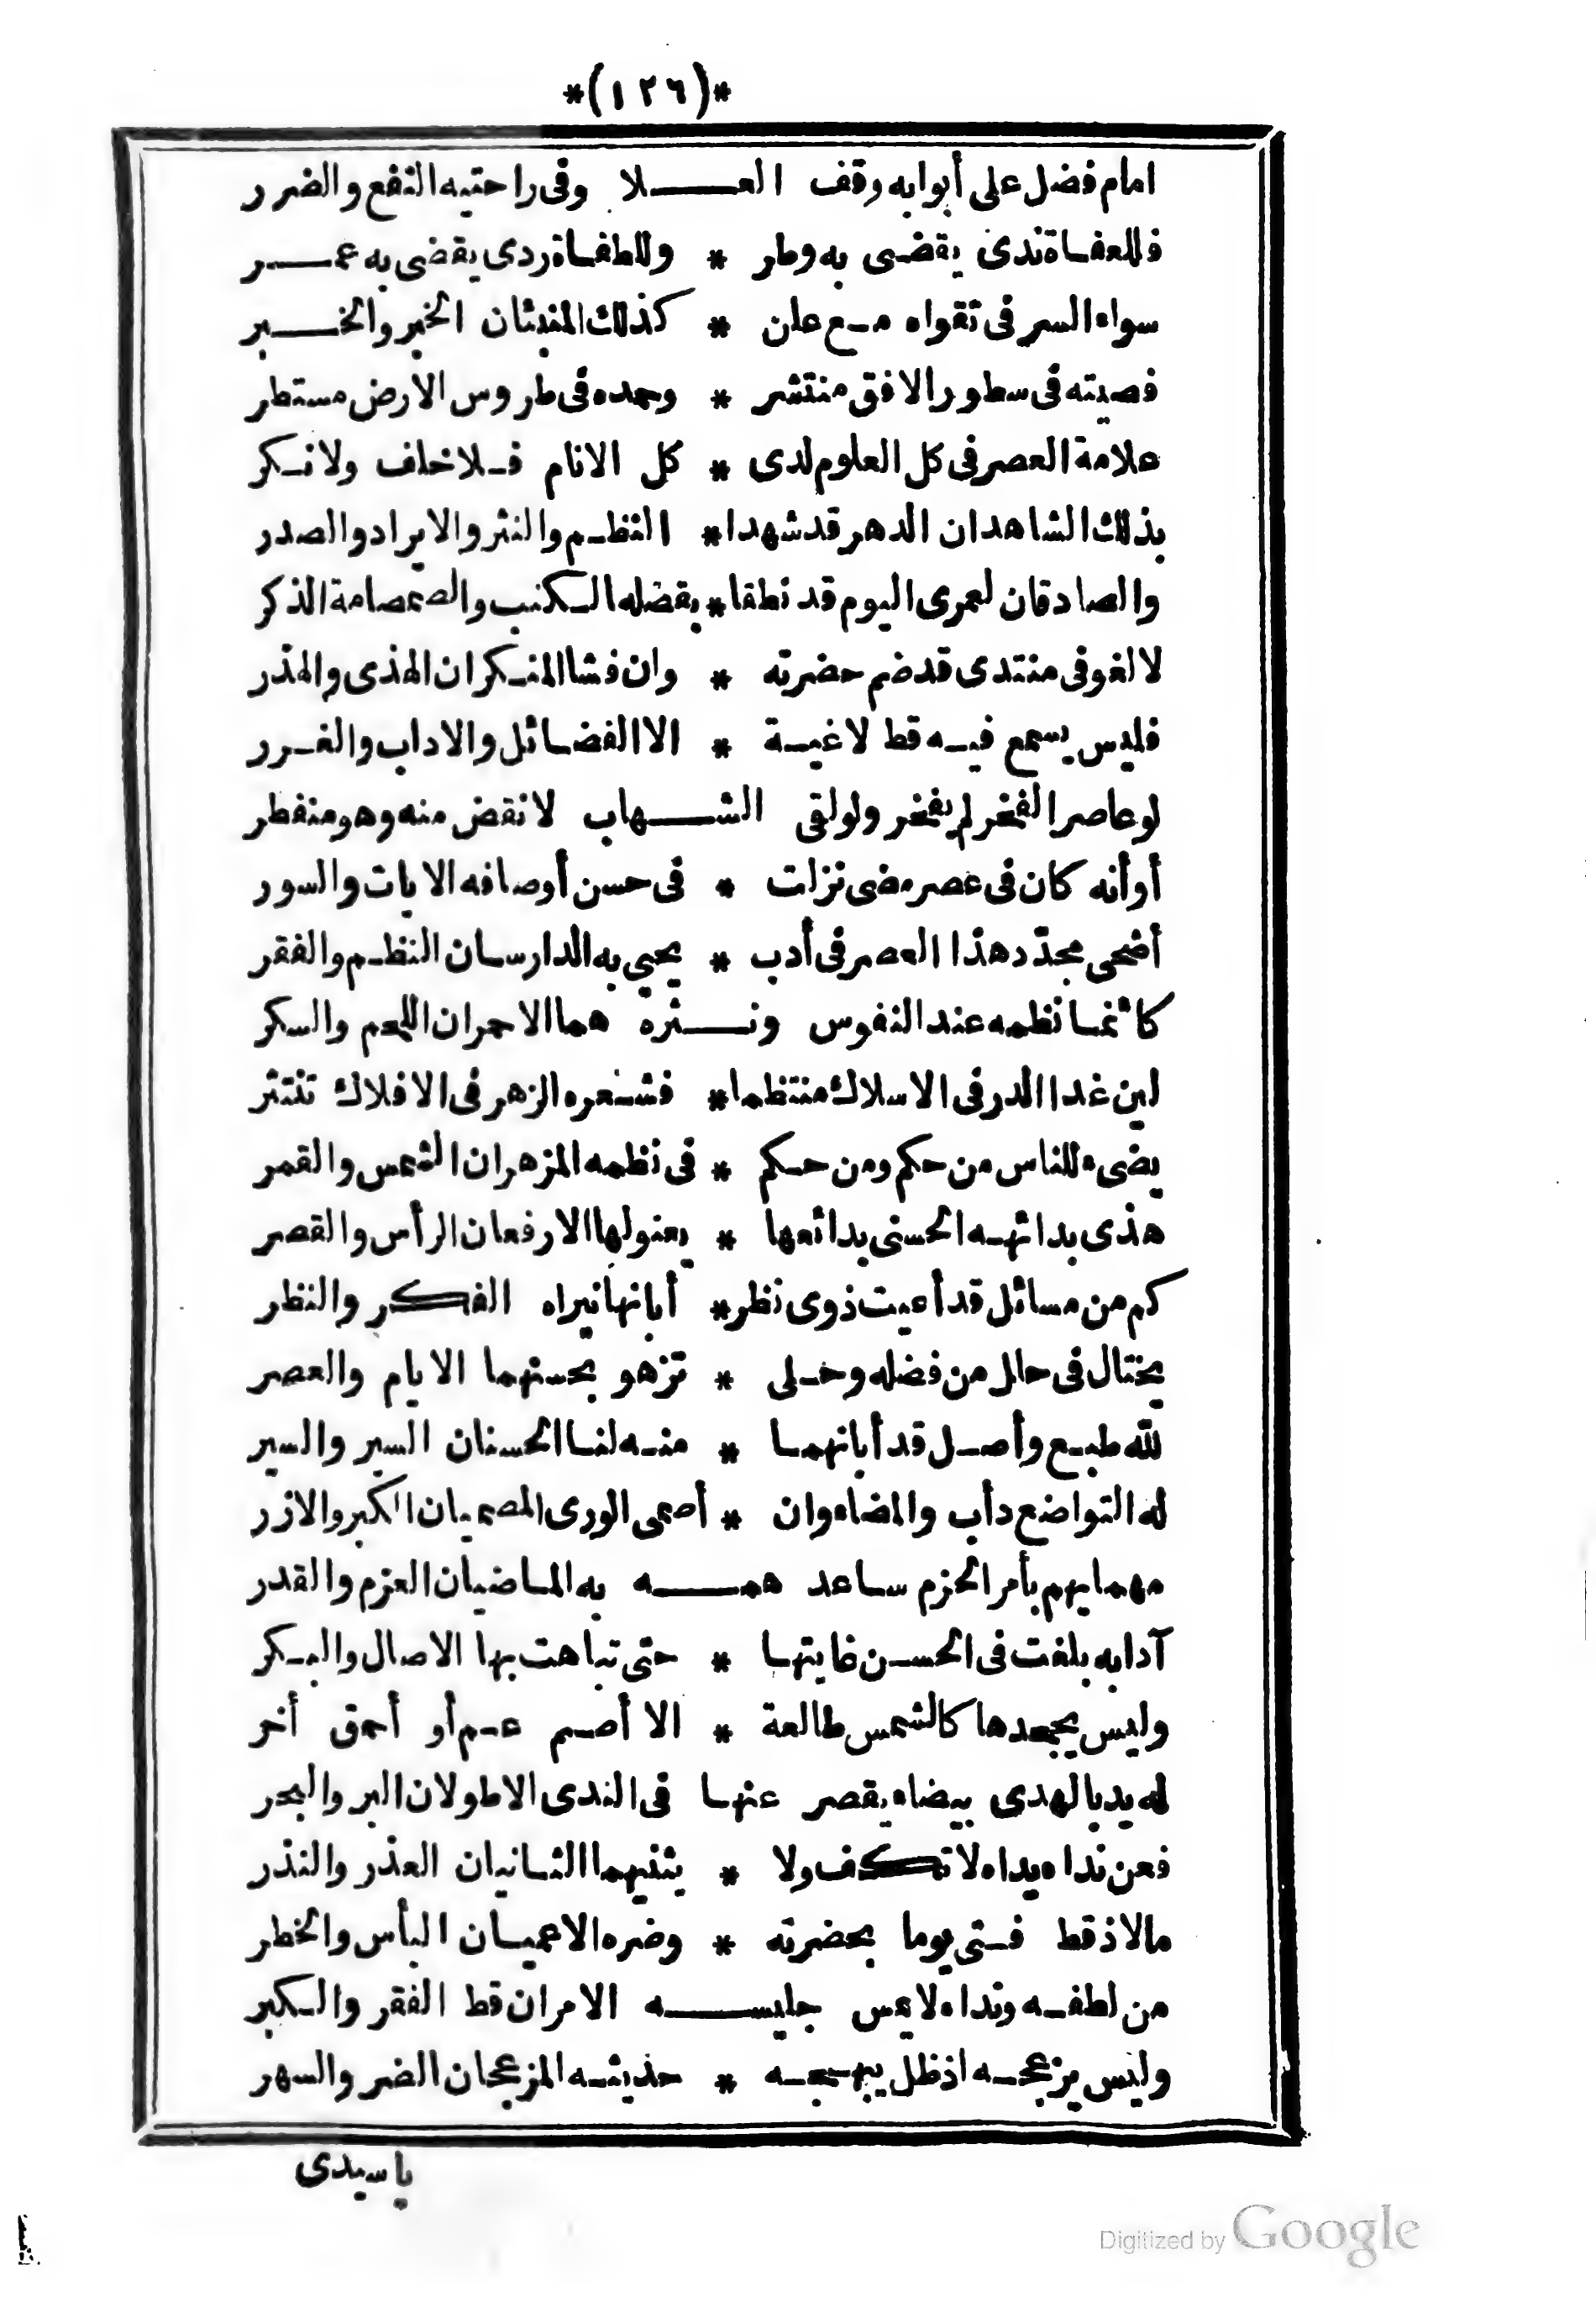 *(١٢٦)*
امام فضل على أبوابه وقف العلا وفى راحتيه النفع والضرر
فللعفاة ندى يقضى به وطر * وللطغاة ردى يقضى به عمر
سواء السر فى تقواه مع علن * كذلك المنبئان الخبر والخبر
فصيته فى سطور الافق منتشر * وحمده فى طروس الارض مستطر
علامة العصر فى كل العلوم لدى * كل الانام فلا خلف ولا نكر
بذلك الشاهدان الدهر قد شهدا * النظم والنثر والايراد والصدر
والصادقان لعمرى اليوم قد نطقا * بفضله الكتب والصمصامة الذكر
لا لغو فى منتدى قد ضم حضرته * وان فشا المنكران الهذى والهذر
فليس يسمع فيه قط لاغية * الا الفضائل والاداب والغرر
لو عاصر الفخر لم يفخر ولو لقى الشهاب لانقض منه وهو منفطر
أو أنه كان فى عصر مضى نزلت * فى حسن أوصافه الايات والسور
أضحى مجدّد هذا العصر فى أدب * يحيى به الدارسان النظم والفقر
كأنما نظمه عند النفوس ونثره هما الاحمران اللحم والسكر
لين غدا الدر فى الاسلاك منتظما * فشعره الزهر فى الافلاك تنتثر
يضىء للناس من حكم ومن حكم * فى نظمه المزهران الشمس والقمر
هذى بدائهه الحسنى بدائعها * يعنو لها الارفعان الرأس والقصر
كم من مسائل قد أعيت ذوى نظر * أبانها نيراه الفكر والنظر
يختال فى حلل من فضله وحلى * تزهو بحسنهما الايام والعصر
لله طبع وأصل قد أبانهما * منه لنا الحسنان السير والسير
له التواضع دأب والمضاء وان * أصمى الورى المصميان الكبر والازر
مهما يهم بأمر الحزم ساعد همه به الماضيان العزم والقدر
آدابه بلغت فى الحسن غايتها * حتى تباهت بها الاصال والبكر
وليس يجحدها كالشمس طالعة * الا أصم عم أو أحمق أخر
له يد بالهدى بيضاء يقصر عنها فى الندى الاطولان البر والبحر
فعن نداه يداه لا تكف ولا * يثنيهما الثانيان العذر والنذر
ما لاذ قط فتى يوما بحضرته * وضره الاعميان البأس والخطر
من لطفه ونداه لا يمس جليسه الامران قط الفقر والكبر
وليس يزعجه اذ ظل يبهجه * حديثه المزعجان الضر والسهر
ياسيدى
Digitized by Google